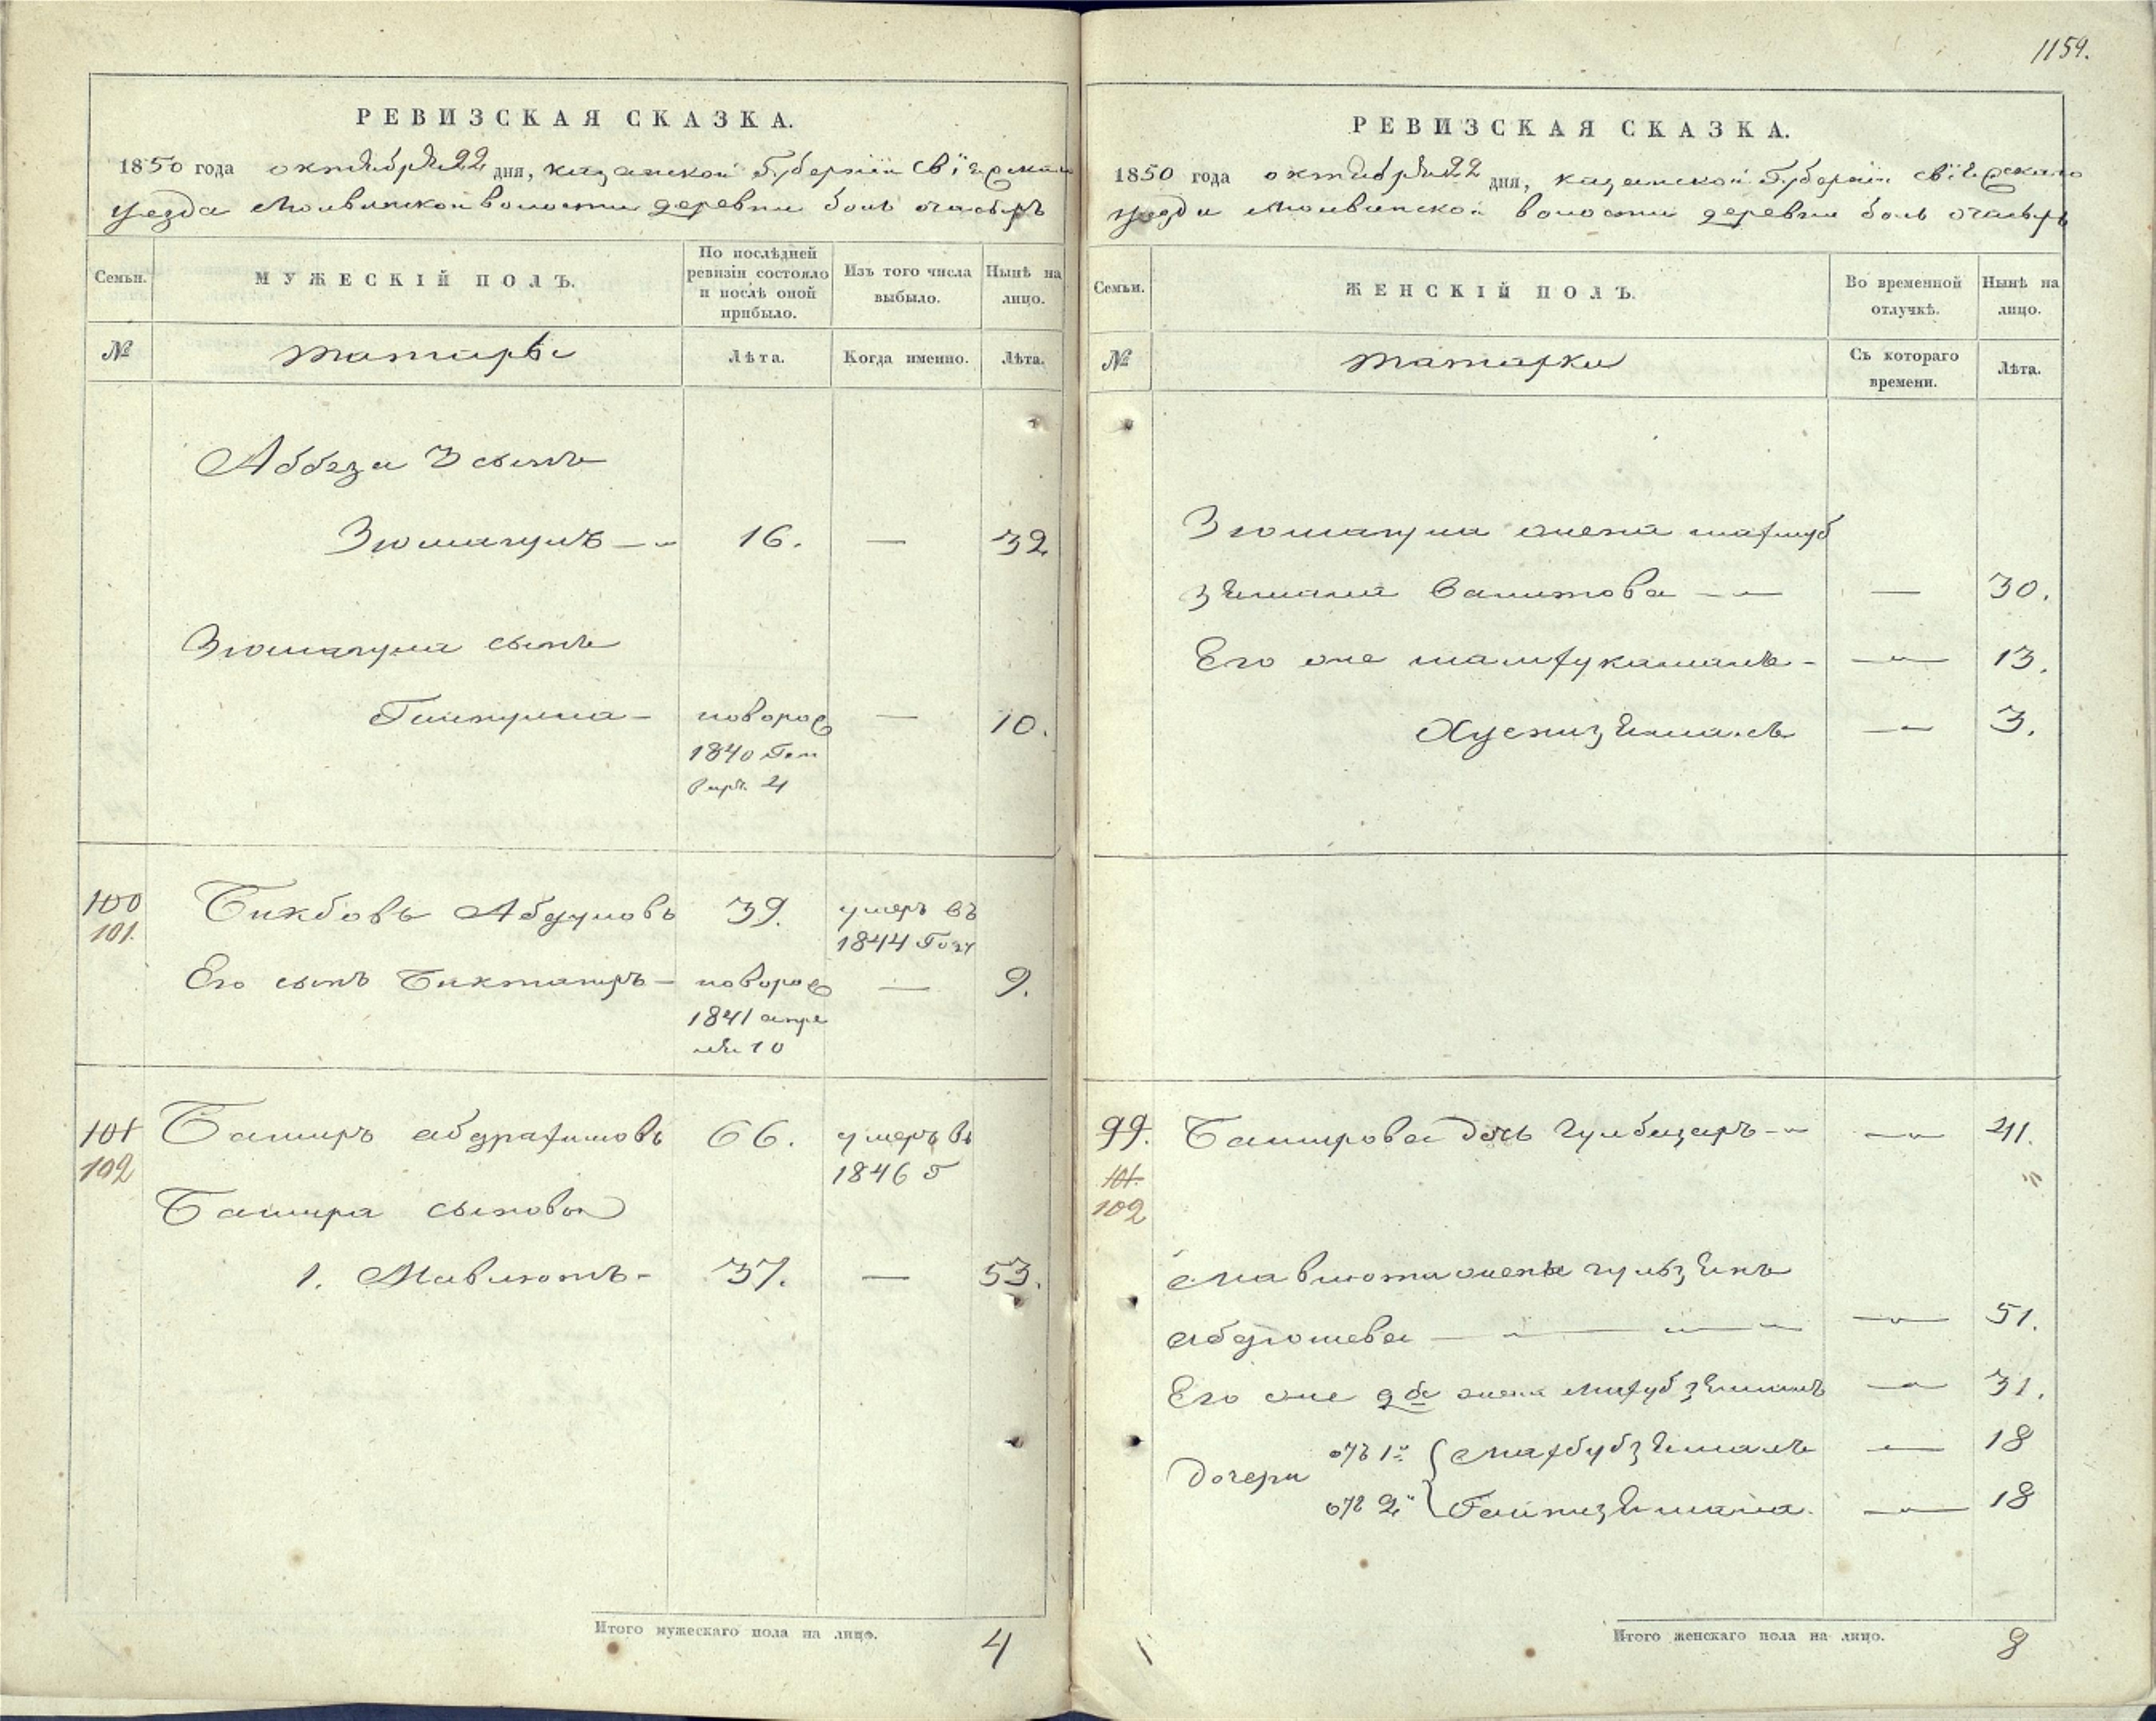 1159.
РЕВИЗСКАЯ СКАЗКА.
1850 года октября 22 дня, казанской Губернии Свіяжскаго
уезда Молвинской волости деревни боль очасырь
Семьи. МУЖЕСКІЙ ПОЛЪ. По послѣдней ревизіи состояло и послѣ оной прибыло. Изъ того числа выбыло. Нынѣ на лицо.
№ татары Лѣта. Когда именно. Лѣта.
Аббяза 3 сынъ
Зюмагулъ — 16. — 32
Зюмагула сынъ
Гайнулла — новорож 1840 Ген — 10.
варя 4
100 Бикбовъ Абдуловъ 39. умеръ въ
101. 1844 Году
Его сынъ Бикташръ — новорож — 9.
1841 апре
ля 10
101 Баширъ абдрахимовъ 66. умеръ въ
102 1846 г
Башира сыновья
1. Мавлютъ — 37. — 53.
Итого мужескаго пола на лицо. 4
РЕВИЗСКАЯ СКАЗКА.
1850 года октября 22 дня, казанской Губерніи Свіяжскаго
уезда Молвинской волости деревни боль очасырь
Семьи. ЖЕНСКІЙ ПОЛЪ. Во временной отлучкѣ. Нынѣ на лицо.
№ татарки Съ котораго времени. Лѣта.
Зюмагула жена махуб
зямала Валитова — — 30.
Его же — 13.
Хуснизямалъ — 3.
99. Баширова дочь Гулбизаръ — — 41.
101.
102
Мавлюта жена гульзянъ
абдюшева — — 51.
Его же 2я жена Махубзямалъ — 31.
дочери отъ 1й Махбубзямалъ — 18
отъ 2й Гайнизямала. — 18
Итого женскаго пола на лицо. 8